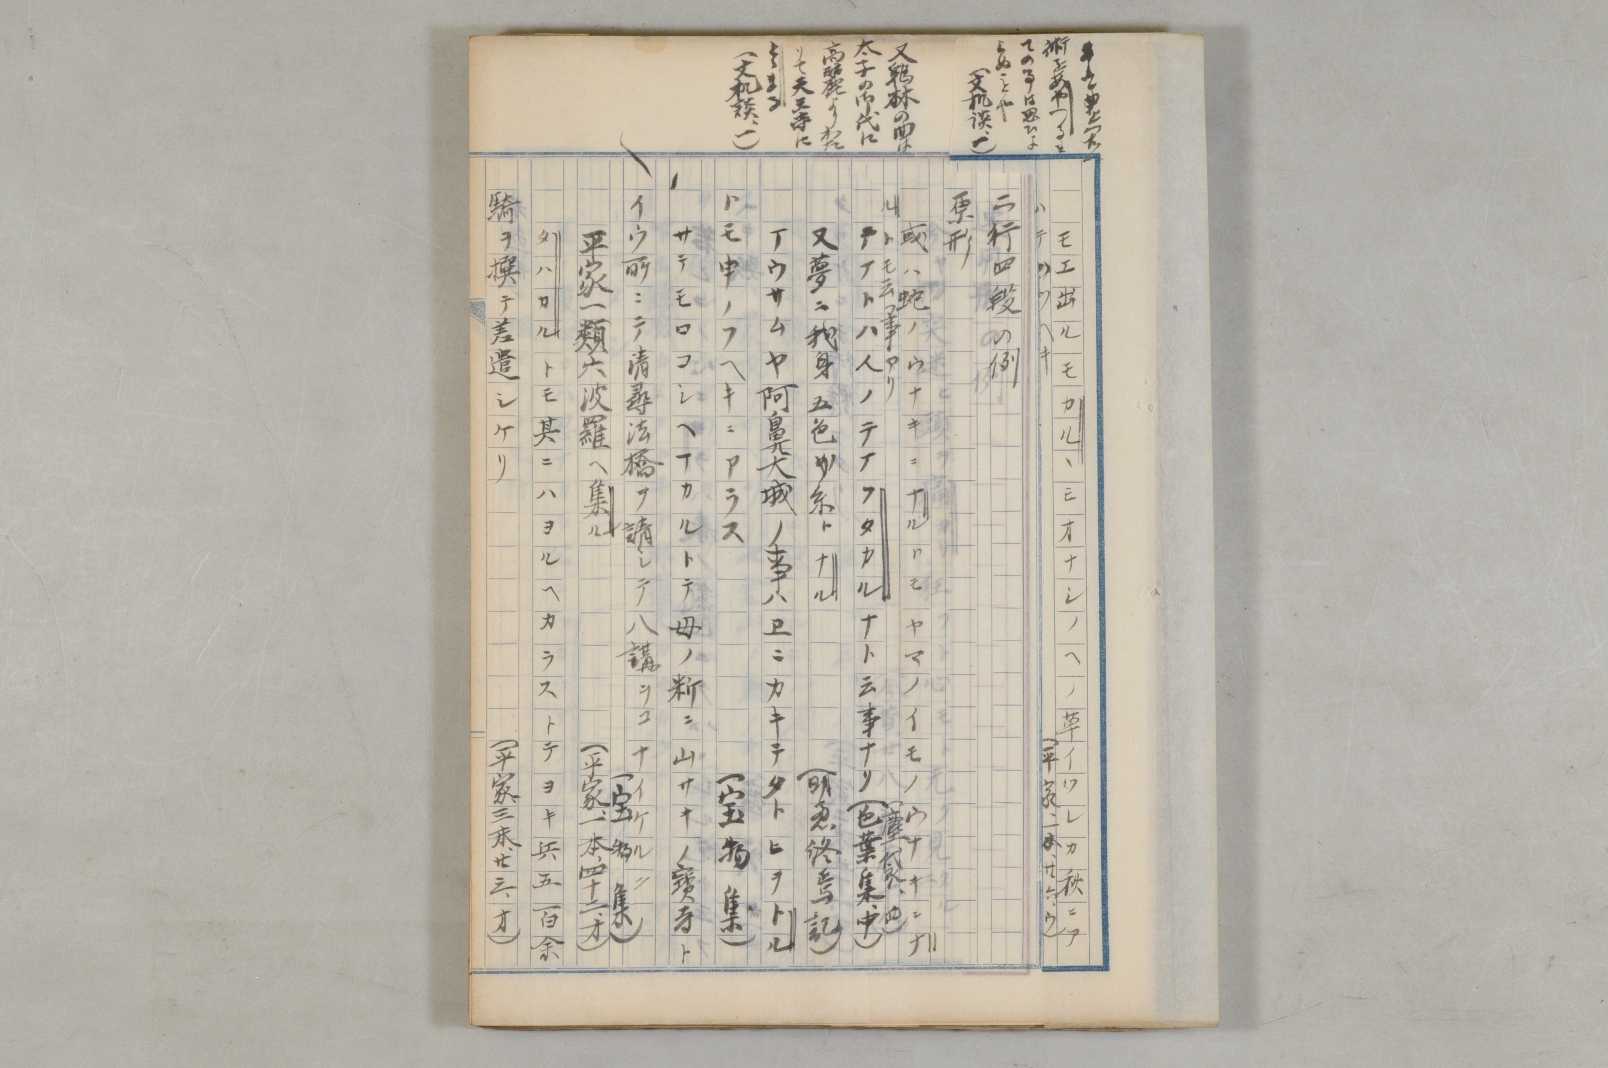 術をあやつると
ての事は思ひよ
らぬことや
(文机談、一)
又鶏林の曲は
太子の御代に
高麗よりわた
りて天王寺に
とゝまる
(文机談、一)
モエ出ルモカルヽモオナシノヘノ草イツレカ秋ニア
ハテハツヘキ
(平家、一本、廿六、ウ)
ラ行四段の例
原形
或ハ蛇ノウナキニナルトモヤマノイモノウナキニナ
ルトモ云事アリ
(塵袋、四)
テアトハ人ノテアフタカルナト云事ナリ(色葉集、中)
又夢ニ我身五色ノ糸トナル
(明恵終焉記)
アウサムヤ阿鼻大城ノ事ハ卫ニカキテタトヒヲトル
トモ申ノフヘキニアラス
(宝物集)
サテモロコシヘアカルトテ母ノ断ニ山サキノ寶寺ト
イウ所ニテ清尋法橋ヲ請シテ八講ヲコナイケルニ
(宝物集)
平家一類六波羅ヘ集ル
(平家、一本、四十二、オ)
タハカルトモ其ニハヨルヘカラストテヨキ兵五百余
騎ヲ撰テ差遣シケリ
(平家、三本、廿三、オ)